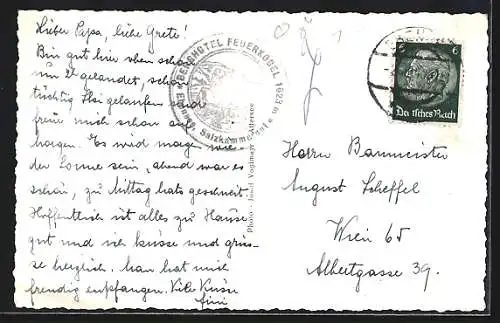 Lieber Papa, liebe Grete!
Bin gut hier oben schon
um 2 gelandet, schon
tüchtig Ski gelaufen und
freue mich schon auf
morgen. Es wird morgen wie
der Sonne sein, abend war es
schön, zu Mittag hats geschneit.
Hoffentlich ist alles zu Hause
gut und ich küsse und grüs-
se herzlich. Man hat mich
freudig empfangen. Viele Küsse
Fini
BERGHOTEL FEUERKOGEL 1623 m
Ebensee, Salzkammergut
Photo: Josef Attersee
6 6
Deutsches Reich
Herrn Baumeister
August Scheffel
Wien 65
Albertgasse 39.